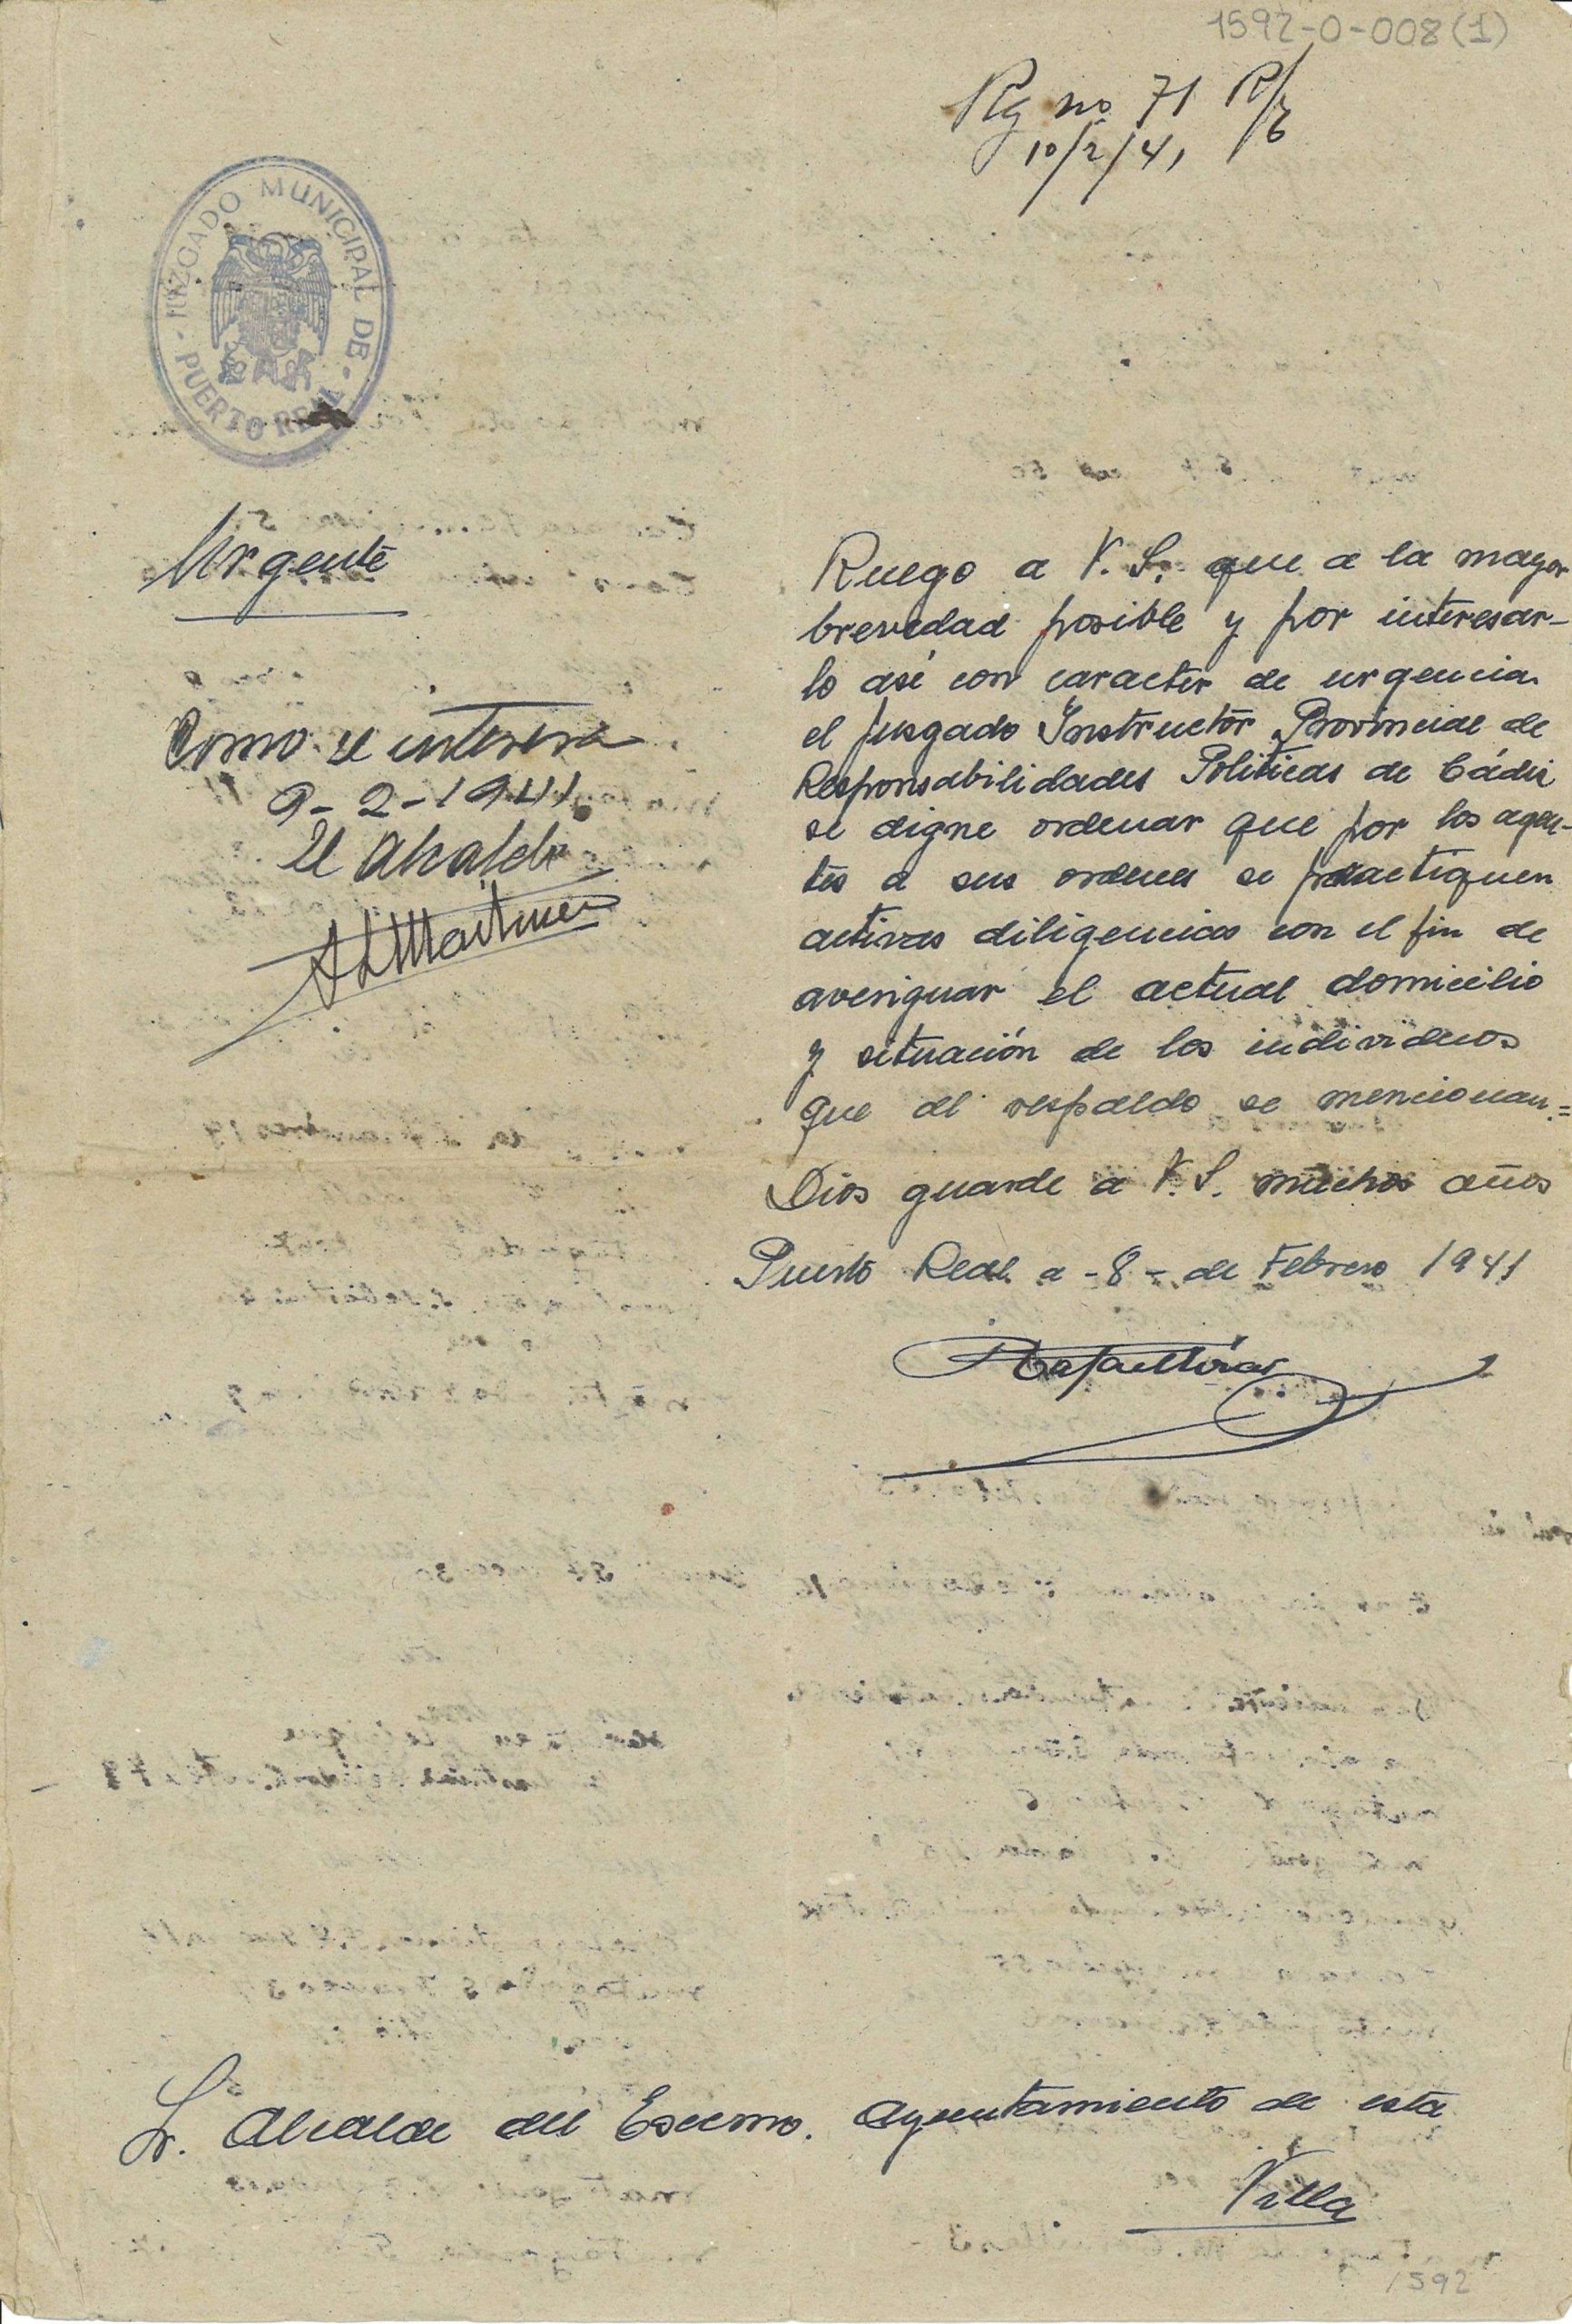 1592-0-008(1)
Rg no 71
10/2/41
JUZGADO MUNICIPAL DE
- PUERTO REAL -
Urgente
Como se interesa
9-2-1941
El Alcalde
Ruego a V. S. que a la mayor
brevedad posible y por interesar-
lo asi con caracter de urgencia
el Jusgado Instructor Provincial de
Responsabilidades Politicas de Cádiz
se digne ordenar que por los agen-
tes a sus ordenes se practiquen
activas diligencias con el fin de
averiguar el actual domicilio
y situación de los individuos
que al respaldo se mencionan.=
Dios guarde a V. S. muchos años
Puerto Real a -8- de Febrero 1941
Sr. Alcalde del Excmo. Ayuntamiento de esta
Villa
1592